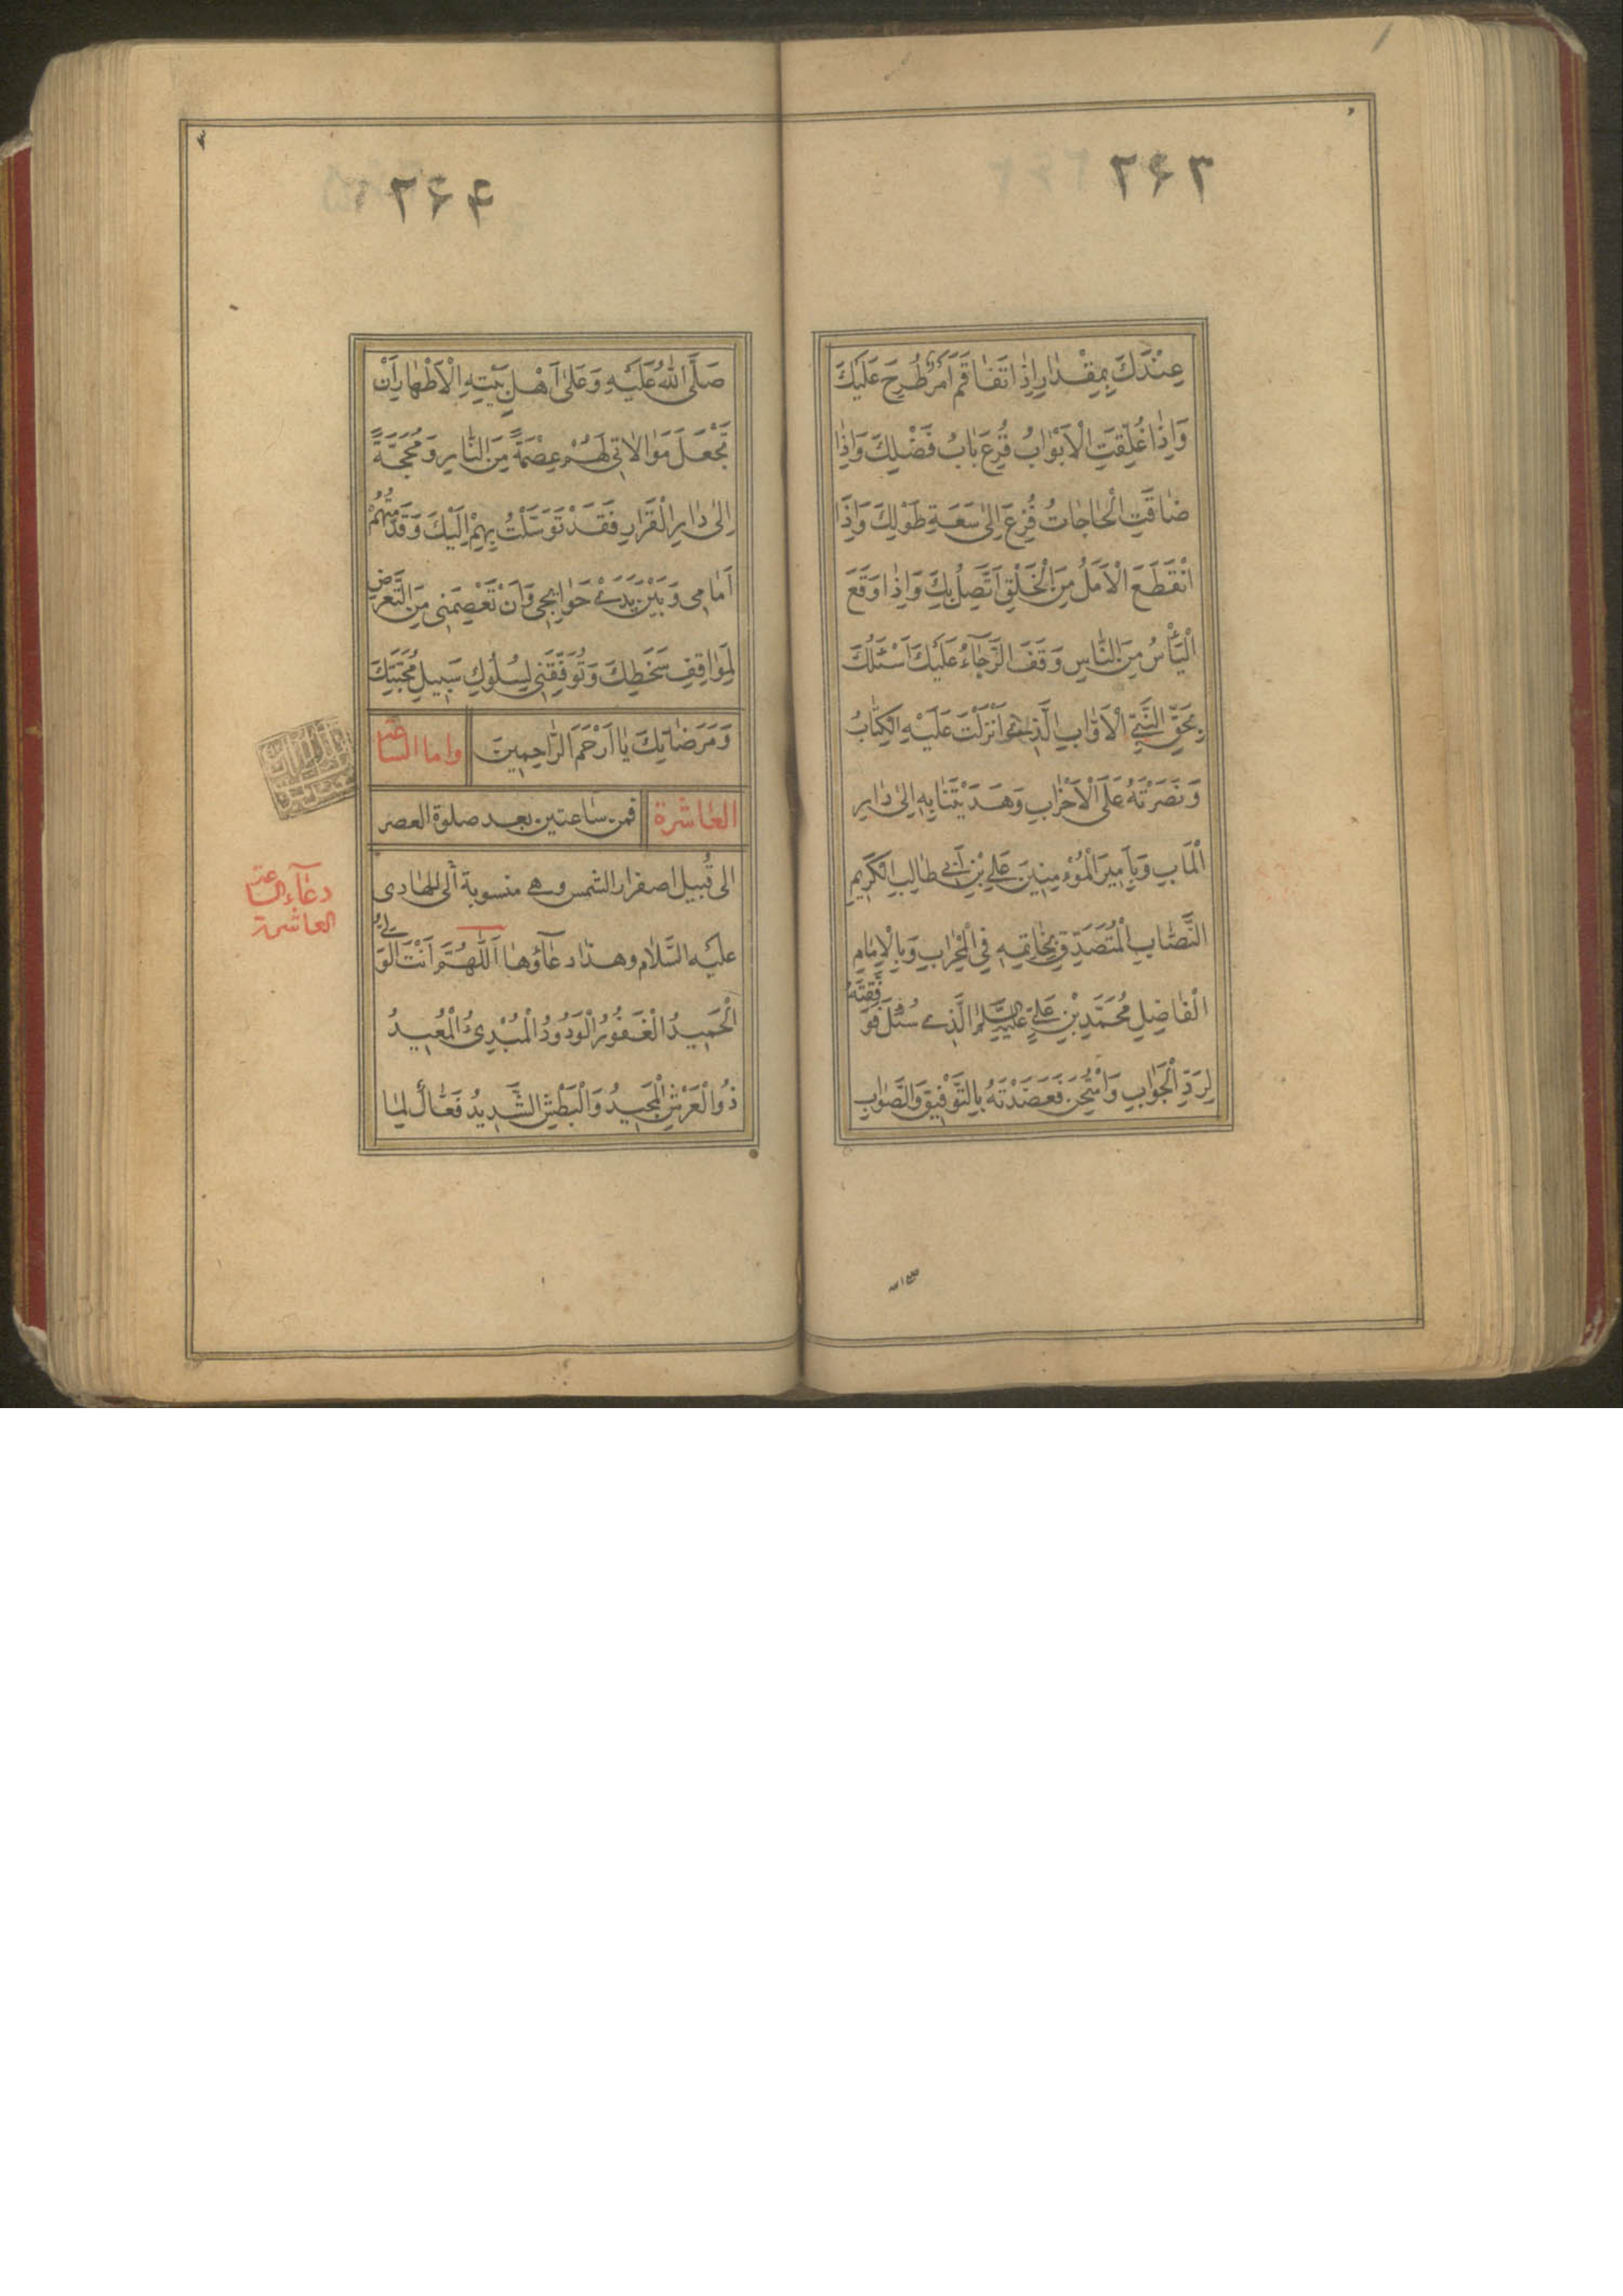 ۲۶۳
عِنْدَكَ بِمِقْدٰارٍ اِذٰا تَفٰاقَمَ اَمْرٌ طُرِحَ عَلَيْكَ
وَاِذٰا غُلِّقَتِ الْاَبْوٰابُ قُرِعَ بٰابُ فَضْلِكَ وَاِذٰا
ضٰاقَتِ الْحٰاجٰاتُ فُزِعَ اِلىٰ سَعَةِ طَوْلِكَ وَاِذَا
انْقَطَعَ الْاَمَلُ مِنَ الْخَلْقِ اتَّصَلَ بِكَ وَاِذٰا وَقَعَ
الْيَأْسُ مِنَ النّٰاسِ وَقَفَ الرَّجٰآءُ عَلَيْكَ اَسْئَلُكَ
بِحَقِّ النَّبِيِّ الْاَوّٰابِ الَّذِي اَنْزَلْتَ عَلَيْهِ الْكِتٰابُ
وَنَصَرْتَهُ عَلَى الْاَحْزٰابِ وَهَدَيْتَنٰا بِهِ اِلىٰ دٰارِ
الْمَاٰبِ وَبِاَمِيرِ الْمُؤْمِنِينَ عَلِيِّ بْنِ اَبِي طٰالِبِ الْكَرِيمِ
النِّصٰابِ الْمُتَصَدِّقِ بِخٰاتِمِهِ فِي الْمِحْرٰابِ وَبِالْاِمٰامِ
الْفٰاضِلِ مُحَمَّدِ بْنِ عَلِيٍّ عَلَيْهِ السَّلَامُ الَّذِي سُئِلَ فَوَفَّقْتَهُ
لِرَدِّ الْجَوٰابِ وَامْتُحِنَ فَعَضَدْتَهُ بِالتَّوْفِيقِ وَالصَّوٰابِ
۲۶۴
صَلَّى اللّٰهُ عَلَيْهِ وَعَلىٰ اَهْلِ بَيْتِهِ الْاَطْهٰارِ اَنْ
تَجْعَلَ مَوٰالاٰتِي لَهُمْ عِصْمَةً مِنَ النّٰارِ وَمَحَجَّةً
اِلىٰ دٰارِ الْقَرٰارِ فَقَدْ تَوَسَّلْتُ بِهِمْ اِلَيْكَ وَقَدَّمْتُهُمْ
اَمٰامِي وَبَيْنَ يَدَيْ حَوٰائِجِي وَاَنْ تَعْصِمَنِي مِنَ التَّعَرُّضِ
لِمَوٰاقِفِ سَخَطِكَ وَتُوَفِّقَنِي لِسُلُوكِ سَبِيلِ مَحَبَّتِكَ
وَمَرْضٰاتِكَ يٰا اَرْحَمَ الرّٰاحِمِينَ واما الساعة
العاشرة فمن ساعتين بعد صلوة العصر
الى قُبيل اصفرار الشمس وهي منسوبة الى الهادى
عليه السَّلام وهذا دعٰآؤها اَللّٰهُمَّ اَنْتَ الْوَلِيُّ
الْحَمِيدُ الْغَفُورُ الْوَدُودُ الْمُبْدِئُ الْمُعِيدُ
ذُو الْعَرْشِ الْمَجِيدُ وَالْبَطْشِ الشَّدِيدُ فَعّٰالٌ لِمٰا
دعآء الساعة
العاشرة